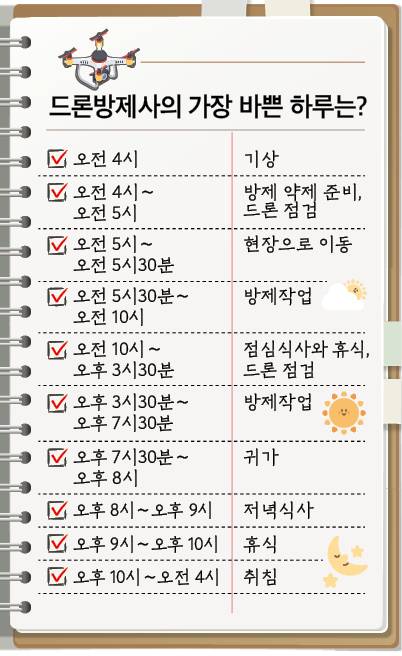 드론방제사의 가장 바쁜 하루는?
오전 4시 기상
오전 4시~ 방제 약제 준비,
오전 5시 드론 점검
오전 5시~ 현장으로 이동
오전 5시30분
오전 5시30분~ 방제작업
오전 10시
오전 10시~ 점심식사와 휴식,
오후 3시30분 드론 점검
오후 3시30분~ 방제작업
오후 7시30분
오후 7시30분~ 귀가
오후 8시
오후 8시~오후 9시 저녁식사
오후 9시~오후 10시 휴식
오후 10시~오전 4시 취침